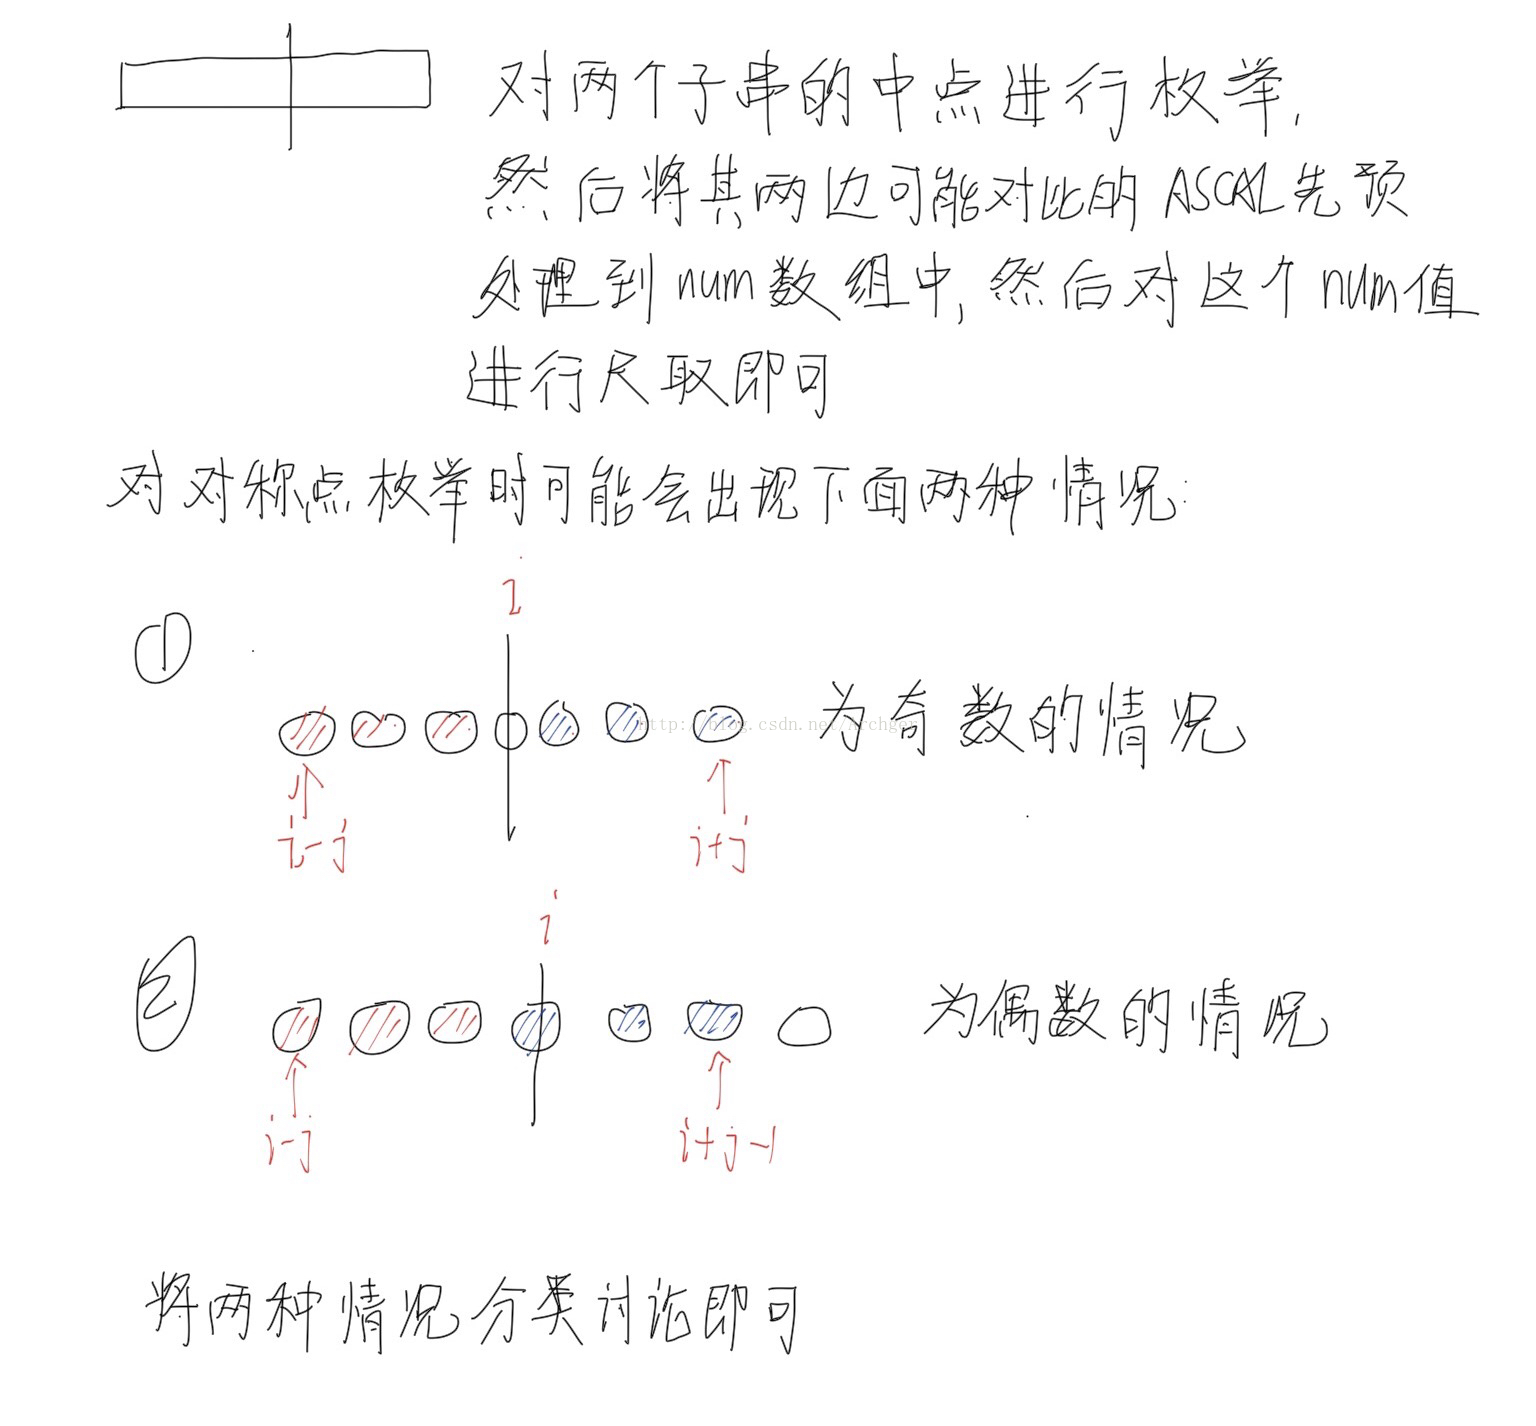 对两个子串的中点进行枚举,
然后将其两边可能对比的ASCAL先预
处理到num数组中,然后对这个num值
进行尺取即可
对对称点枚举时可能会出现下面两种情况:
i
①
http://blog.csdn.net/Archger
为奇数的情况
i-j
i+j
i
②
为偶数的情况
i-j
i+j-1
将两种情况分类讨论即可